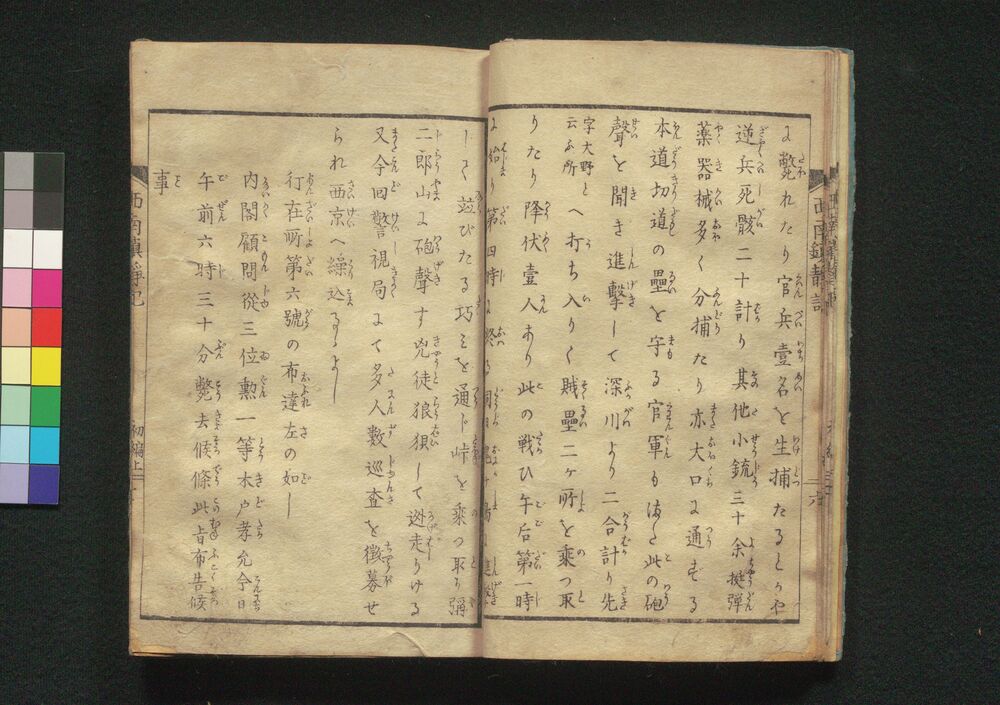 に斃れたり官兵壹名を生捕たるとかや
逆兵死骸二十計り其他小銃三十余挺弾
薬器械多く分捕たり亦大口に通ずる
本道切道の壘を守る官軍も此の砲
聲を聞き進撃して深川より二合計り先
字大野と云ふ所へ打ち入りて賊壘二ヶ所を乘つ取
りたり降伏壹人あり此の戦ひ午后第一時
に始り第四時に終る同日
しく竝びたる巧みを通ド峠を乘つ取り彌
二郎山に砲聲す兇徒狼狽して迯走りける
又今回警視局にて多人數巡査を徴募せ
られ西京へ繰込るよし
行在所第六號の布達左の如し
内閣顧問從三位勲一等木戸孝允今日
午前六時三十分斃去候條此旨布告候
事
西南鎮静記
初編上